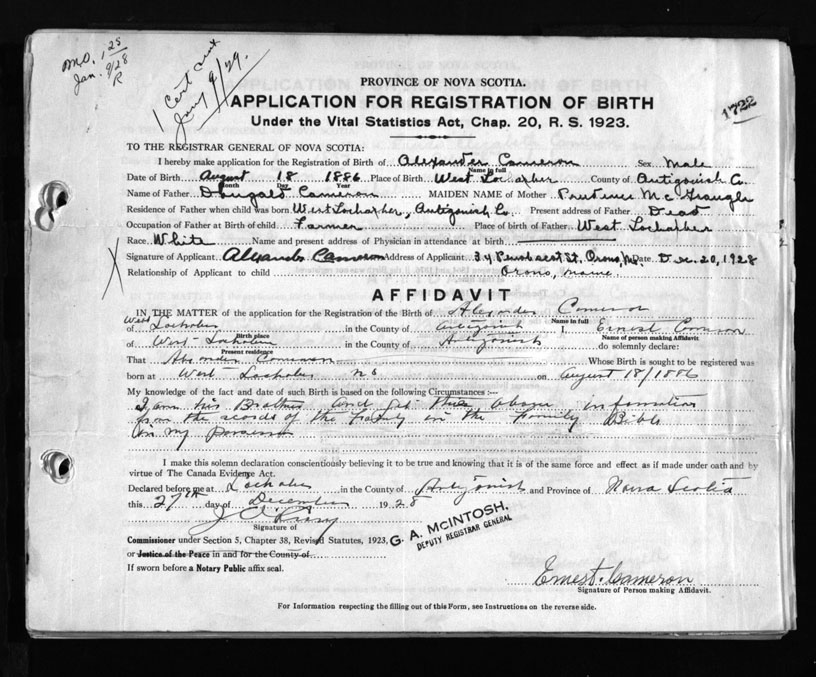 M.O. 1.25
Jan. 9/28
R
1 Cert sent
Jany 9/29.
1722
PROVINCE OF NOVA SCOTIA.
APPLICATION FOR REGISTRATION OF BIRTH
Under the Vital Statistics Act, Chap. 20, R. S. 1923.
TO THE REGISTRAR GENERAL OF NOVA SCOTIA:
I hereby make application for the Registration of Birth of Alexander Cameron Sex Male
Name in full
Date of Birth August 18 1886 Place of Birth West Lochaber County of Antigonish Co.
Month Day Year
Name of Father Dougald Cameron MAIDEN NAME of Mother Prudence
Residence of Father when child was born West Lochaber, Antigonish Co. Present address of Father Dead
Occupation of Father at Birth of child Farmer Place of birth of Father West Lochaber
Race White Name and present address of Physician in attendance at birth
Signature of Applicant Alexander Cameron Address of Applicant 34 St, Orono, Me. Date Dec. 20, 1928
Relationship of Applicant to child Orono, Maine.
AFFIDAVIT
IN THE MATTER of the application for the Registration of the Birth of Alexander Cameron
Name in full
of West Lochaber in the County of Antigonish I, Ernest Cameron
Birth place Name of person making Affidavit
of West-Lochaber in the County of Antigonish do solemnly declare:
Present residence
That Alexander Cameron Whose Birth is sought to be registered was
born at West-Lochaber N S on August 18/1886
My knowledge of the fact and date of such Birth is based on the following Circumstances :—
I am his Brother and get this above information
from the records of the Family in the Family Bible
in my possession
I make this solemn declaration conscientiously believing it to be true and knowing that it is of the same force and effect as if made under oath and by
virtue of The Canada Evidence Act.
Declared before me at Lochaber in the County of Antigonish and Province of Nova Scotia
this 27th day of December 1928
Signature of
Commissioner under Section 5, Chapter 38, Revised Statutes, 1923,
or Justice of the Peace in and for the County of
If sworn before a Notary Public affix seal.
G. A. McINTOSH,
DEPUTY REGISTRAR GENERAL
Ernest. Cameron
Signature of Person making Affidavit.
For Information respecting the filling out of this Form, see Instructions on the reverse side.